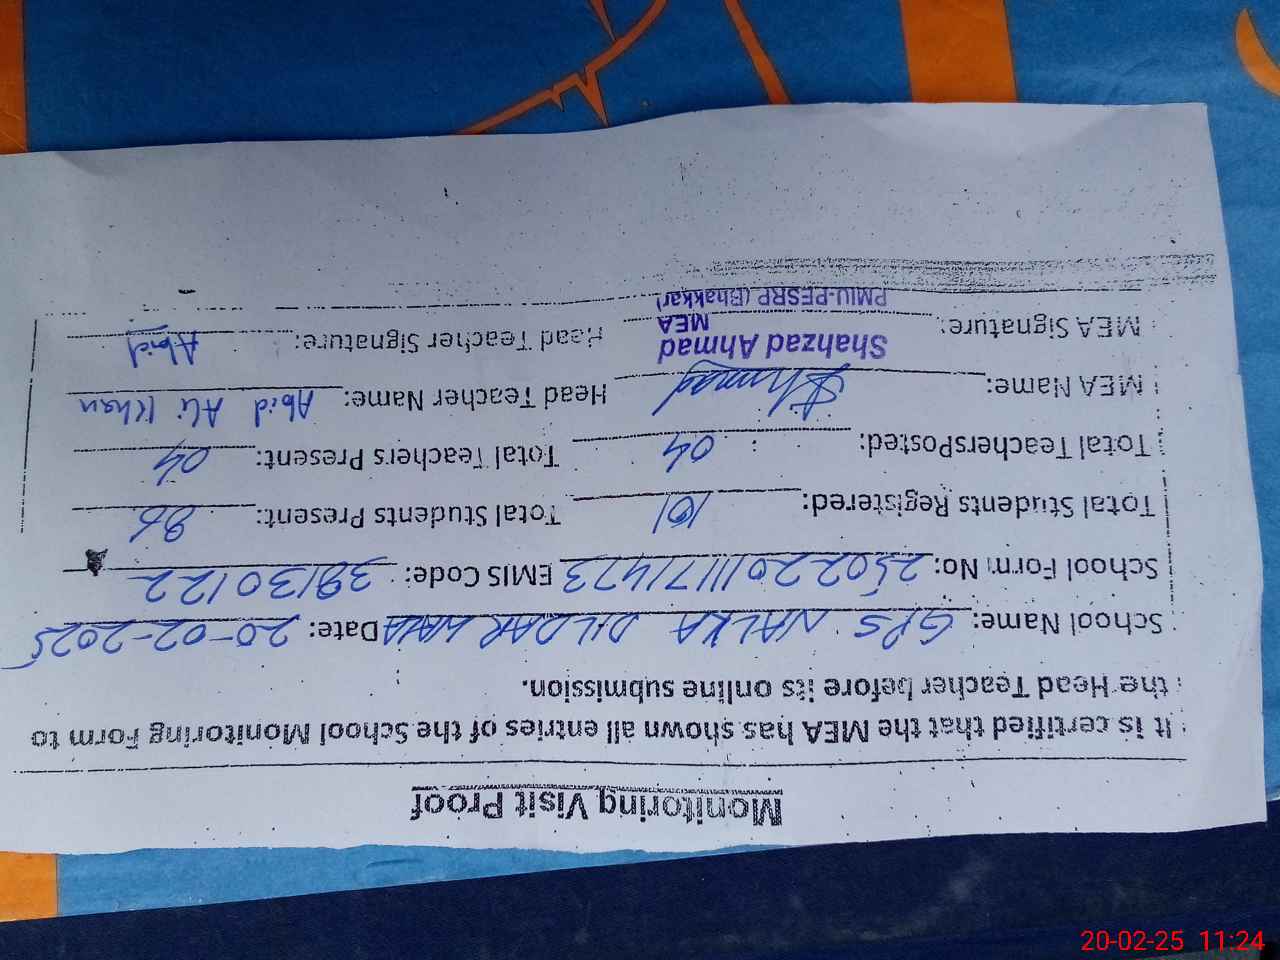 Monitoring Visit Proof
It is certified that the MEA has shown all entries of the School Monitoring Form to
the Head Teacher before its online submission.
School Name: GPS NALKA DILDAR WALA Date: 20-02-2025
School Form No: 25022011171423 EMIS Code: 38130122
Total Students Registered: 101 Total Students Present: 86
Total TeachersPosted: 04 Total Teachers Present: 04
MEA Name: Ahmad Head Teacher Name: Abid Ali Khan
MEA Signature: Shahzad Ahmad Head Teacher Signature: Abid
MEA
PMIU-PESRP (Bhakkar)
20-02-25 11:24